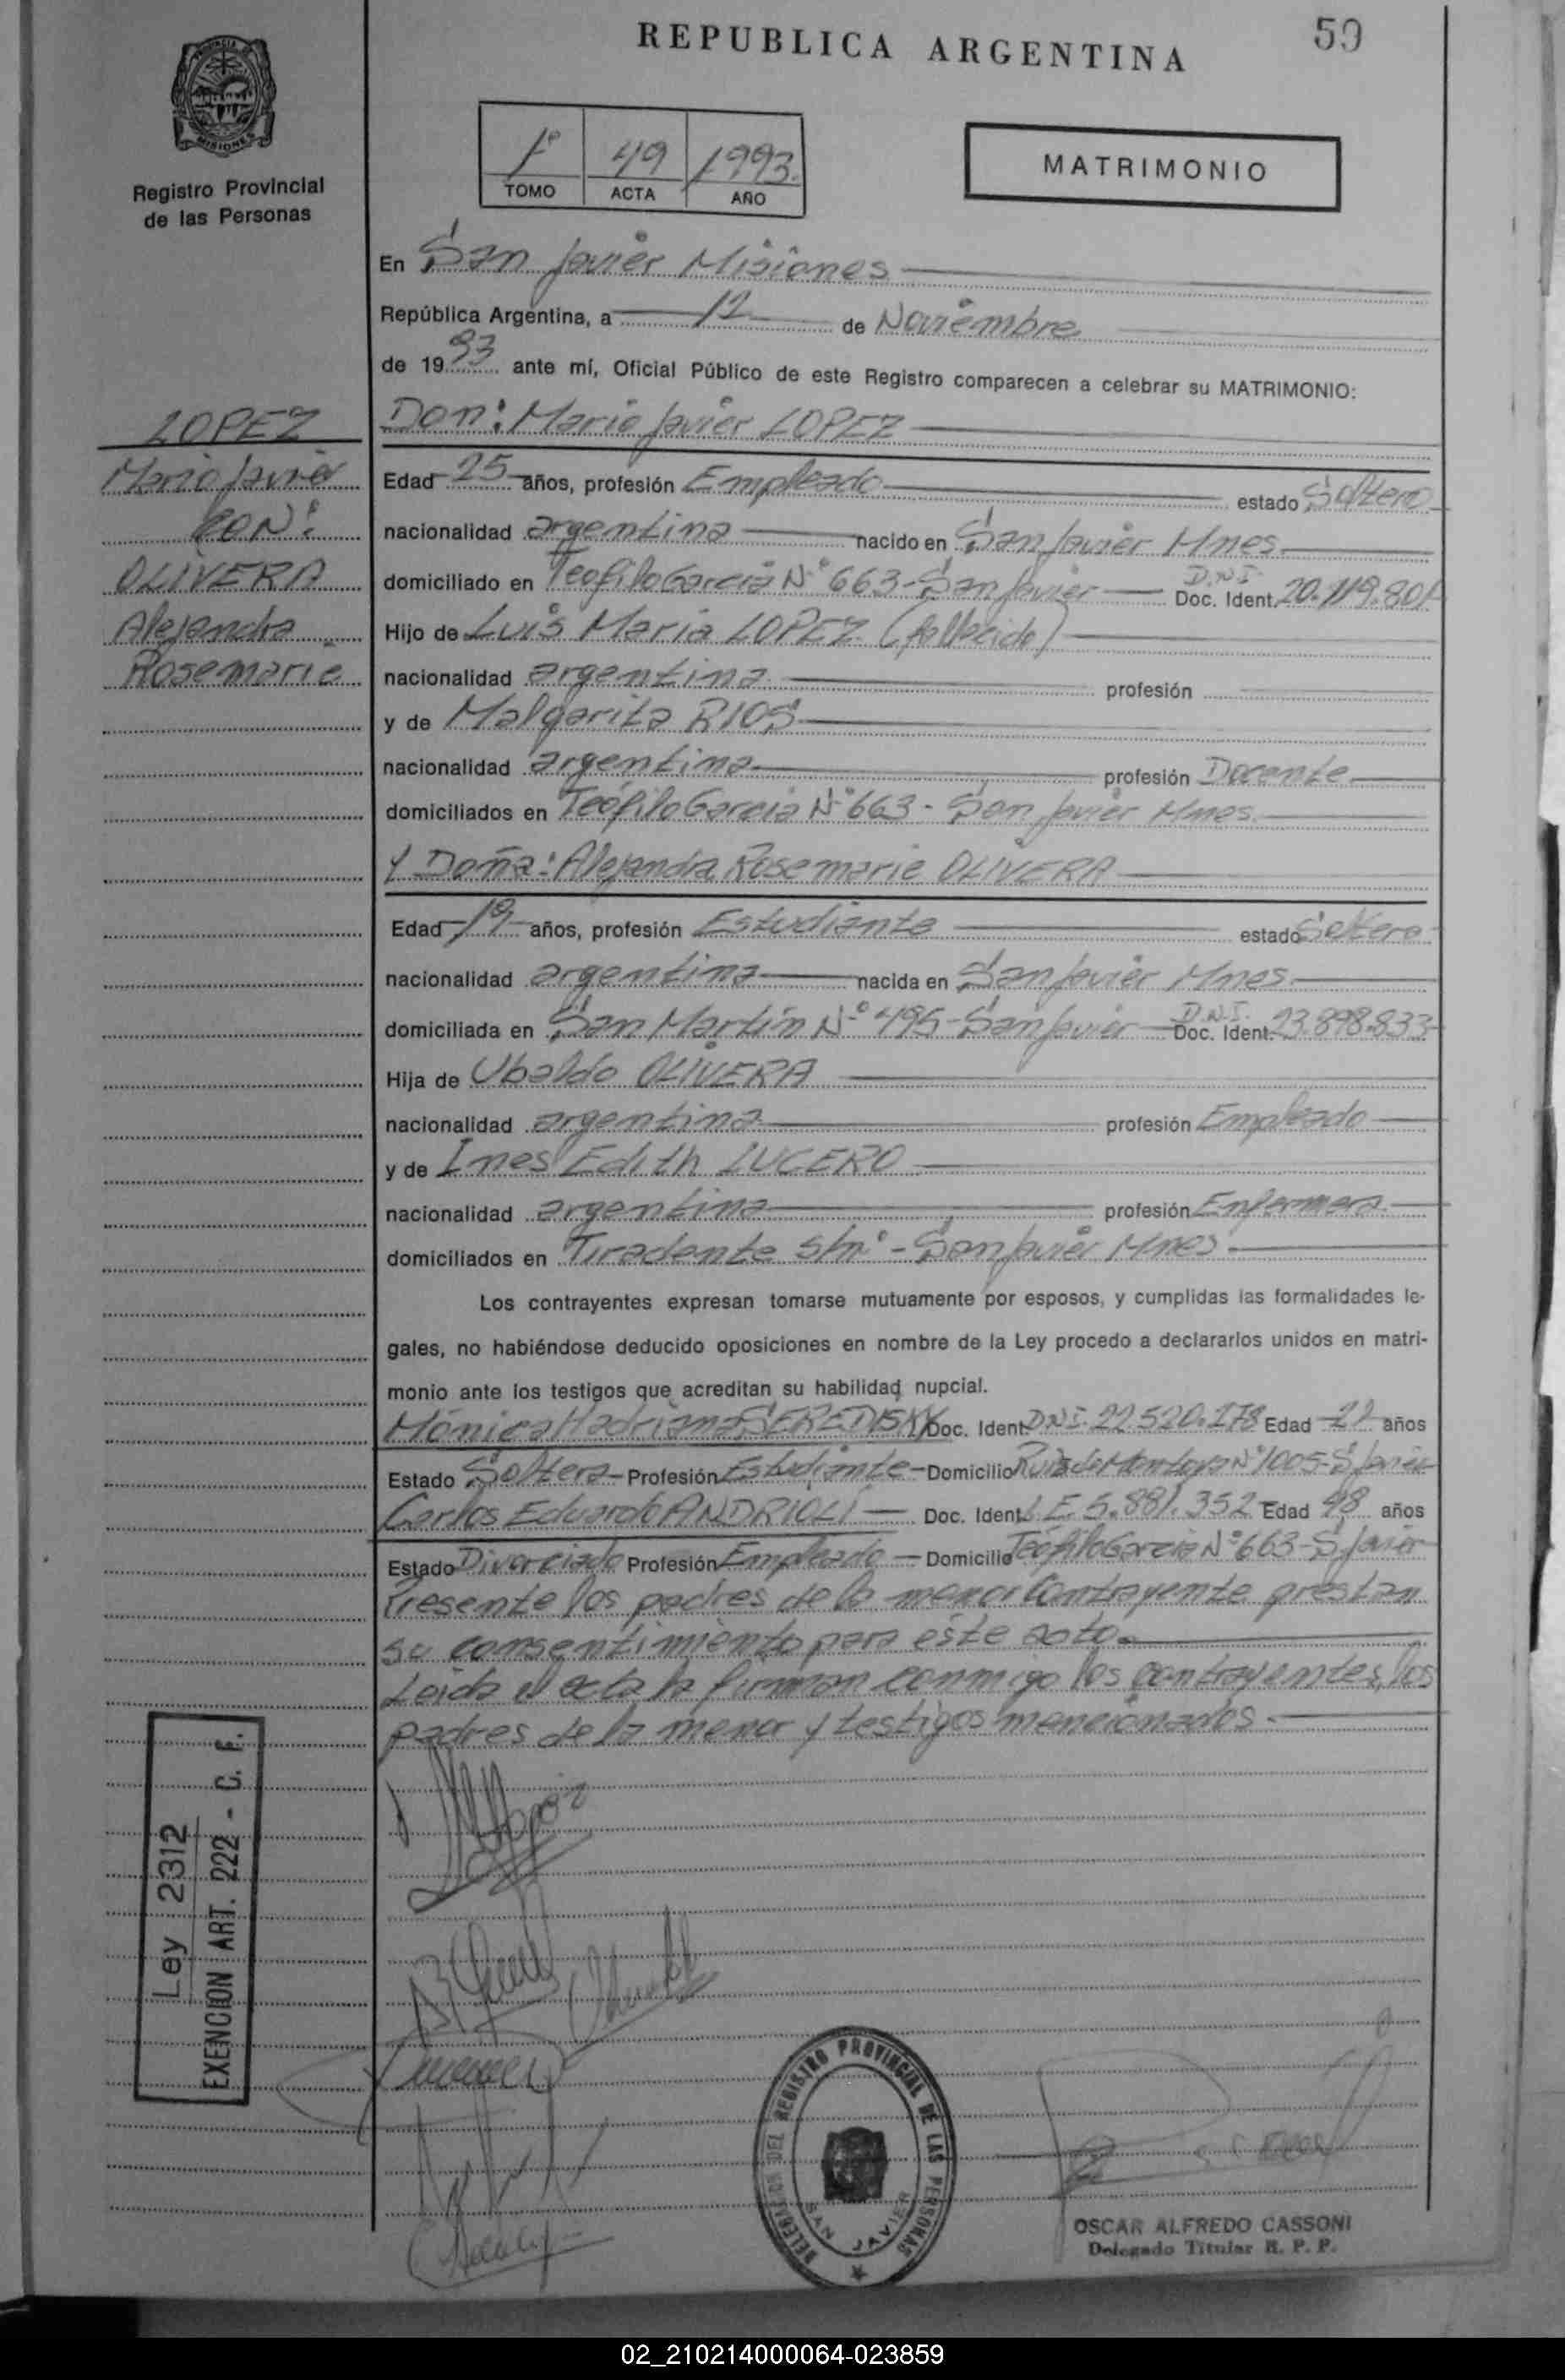 REPUBLICA ARGENTINA
50
PROVINCIA DE MISIONES
Registro Provincial
de las Personas
1º 49 1993.
TOMO ACTA AÑO
MATRIMONIO
En San Javier Misiones
República Argentina, a 12 de Noviembre
de 1993 ante mí, Oficial Público de este Registro comparecen a celebrar su MATRIMONIO:
LOPEZ
Mario Javier
CON:
OLIVERA
Alejandra
Rosemarie
Don: Mario Javier LOPEZ
Edad 25 años, profesión Empleado estado Soltero
nacionalidad argentina nacido en San Javier Mnes
domiciliado en Teofilo Garcia Nº 663-San Javier D.N.I. Doc. Ident. 20.119.801
Hijo de Luis Maria LOPEZ (fallecido)
nacionalidad argentina profesión
y de Malgarita RIOS
nacionalidad argentina profesión Docente
domiciliados en Teófilo Garcia Nº 663 - San Javier Mnes.
Y Doña: Alejandra Rosemarie OLIVERA
Edad 19 años, profesión Estudiante estado Soltera
nacionalidad argentina nacida en San Javier Mnes
domiciliada en San Martín Nº 495-San Javier D.N.I. Doc. Ident. 23.898.833
Hija de Ubaldo OLIVERA
nacionalidad argentina profesión Empleado
y de Ines Edith LUCERO
nacionalidad argentina profesión Enfermera
domiciliados en Tiradente s/nº - San Javier Mnes
Los contrayentes expresan tomarse mutuamente por esposos, y cumplidas las formalidades le-
gales, no habiéndose deducido oposiciones en nombre de la Ley procedo a declararlos unidos en matri-
monio ante los testigos que acreditan su habilidad nupcial.
Mónica Hadriana SEREDISKY Doc. Ident DNI. 22.520.278 Edad 21 años
Estado Soltera - Profesión Estudiante - Domicilio Ruiz de Montoya Nº 1005-S Javier
Carlos Eduardo ANDRIOLI Doc. Ident L.E. 5.881.352 Edad 48 años
Estado Divorciado Profesión Empleado - Domicilio Teófilo Garcia Nº 663-S Javier
Presente los padres de la menor Contrayente prestan
su consentimiento para este acto.
Leida el acta la firman conmigo los contrayentes, los
padres de la menor y testigos mencionados.
Ley 2312
EXENCION ART. 222 - C. F.
DELEGACION DEL REGISTRO PROVINCIAL DE LAS PERSONAS
SAN JAVIER
OSCAR ALFREDO CASSONI
Delegado Titular R. P. P.
02_210214000064-023859